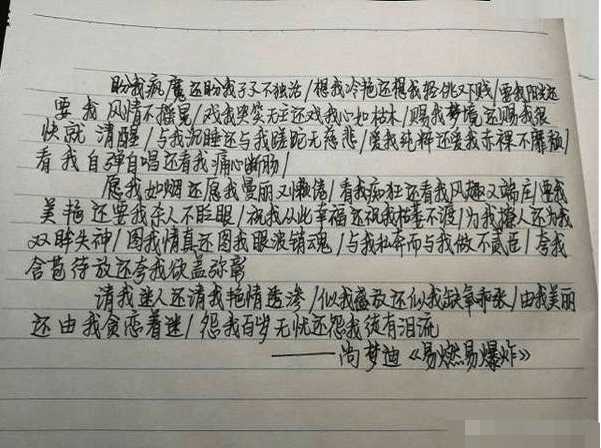 盼我疯魔还盼我孑孓不独活/想我冷艳还想我轻佻又下贱/要我阳光还
要我风情不摇晃/戏我哭笑无主还戏我心如枯木/赐我梦境还赐我很
快就清醒/与我沉睡还与我蹉跎无慈悲/爱我纯粹还爱我赤裸不靡颓/
看我自弹自唱还看我痛心断肠/
愿我如烟还愿我曼丽又懒倦/看我痴狂还看我风趣又端庄/要我
美艳还要我杀人不眨眼/祝我从此幸福还祝我枯萎不渡/为我撩人还为我
双眸失神/图我情真还图我眼波销魂/与我私奔而与我做不贰臣/夸我
含苞待放还夸我欲盖弥彰
请我迷人还请我艳情透渗/似我盛放还似我缺氧乖张/由我美丽
还由我贪恋着迷/怨我百岁无忧还怨我徒有泪流
——尚梦迪《易燃易爆炸》